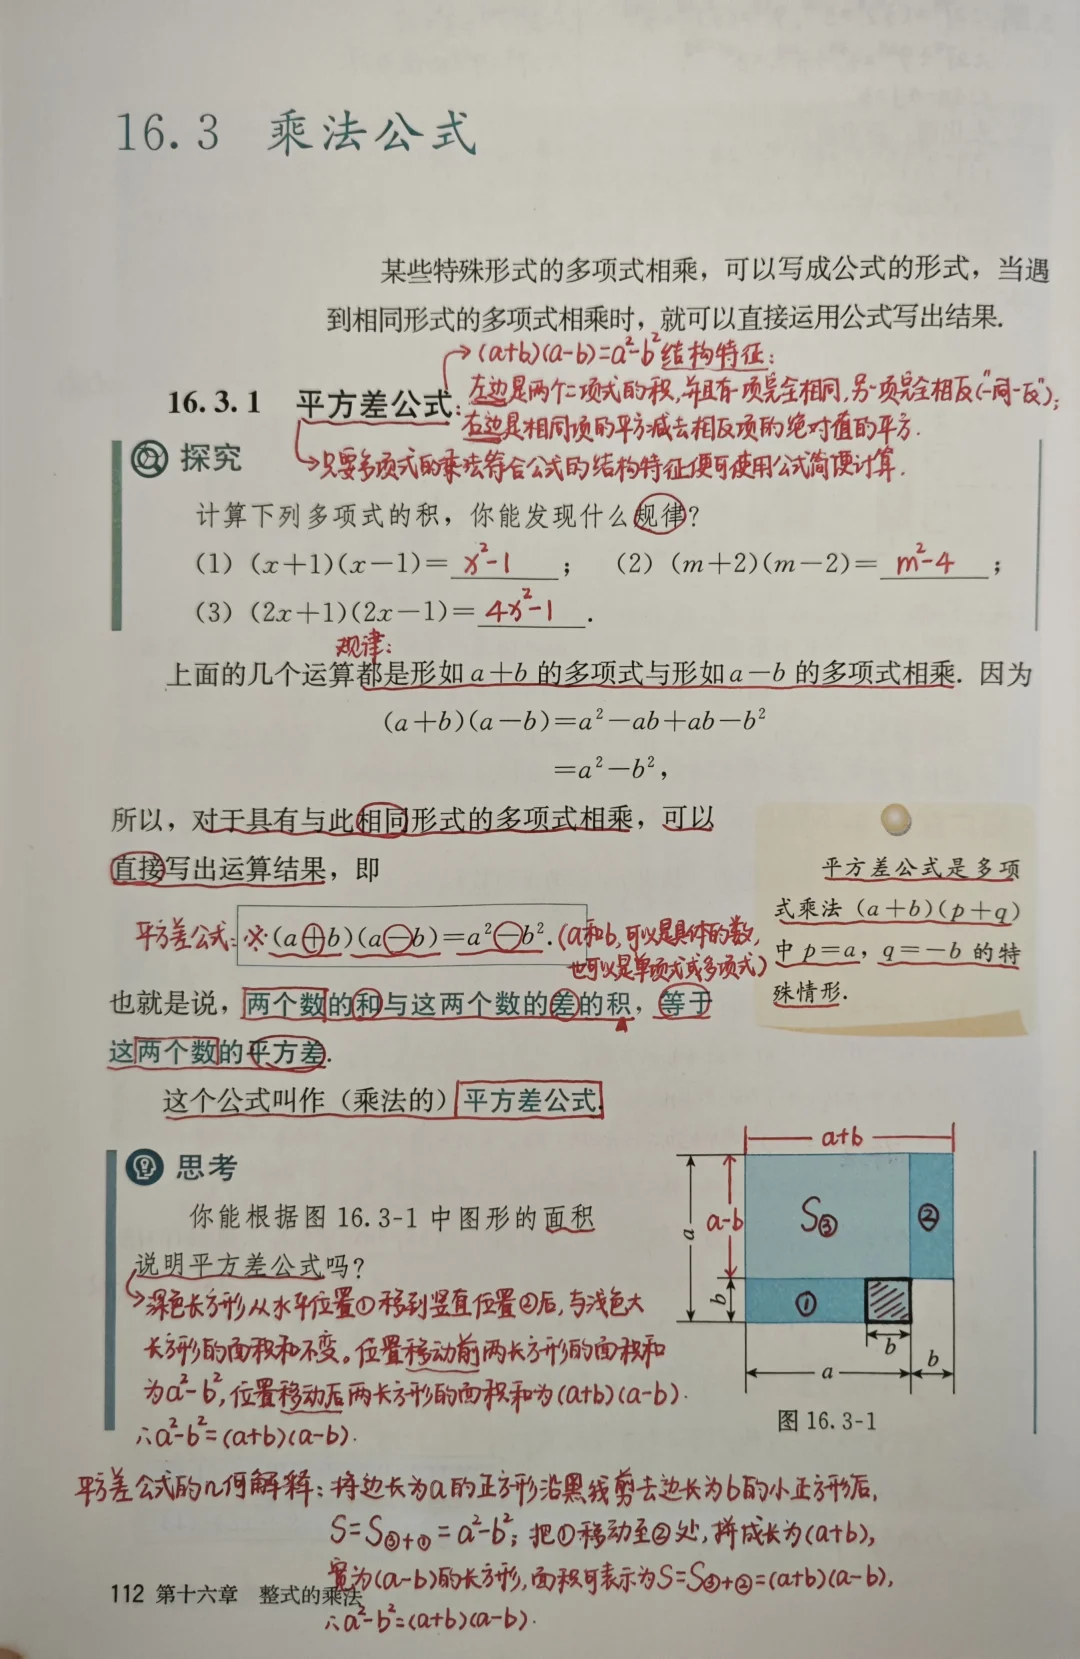 16.3 乘法公式
某些特殊形式的多项式相乘，可以写成公式的形式，当遇
到相同形式的多项式相乘时，就可以直接运用公式写出结果.
→(a+b)(a-b)=a²-b²结构特征：
16.3.1 平方差公式：左边是两个二项式的积，并且有一项完全相同，另一项完全相反("一同一反")；
右边是相同项的平方减去相反项的绝对值的平方.
探究
→只要多项式的乘法符合公式的结构特征便可使用公式简便计算.
计算下列多项式的积，你能发现什么规律？
(1) (x+1)(x-1)= x²-1 ； (2) (m+2)(m-2)= m²-4 ；
(3) (2x+1)(2x-1)= 4x²-1 .
规律：
上面的几个运算都是形如 a+b 的多项式与形如 a-b 的多项式相乘. 因为
(a+b)(a-b)=a²-ab+ab-b²
=a²-b²，
所以，对于具有与此相同形式的多项式相乘，可以
直接写出运算结果，即
平方差公式：※(a+b)(a-b)=a²-b². (a和b，可以是具体的数，
也可以是单项式或多项式)
也就是说，两个数的和与这两个数的差的积，等于
这两个数的平方差.
这个公式叫作（乘法的）平方差公式.
平方差公式是多项
式乘法 (a+b)(p+q)
中 p=a，q=-b 的特
殊情形.
思考
你能根据图 16.3-1 中图形的面积
说明平方差公式吗？
→深色长方形从水平位置①移到竖直位置②后，与浅色大
长方形的面积和不变。位置移动前两长方形的面积和
为a²-b²，位置移动后两长方形的面积和为(a+b)(a-b).
∴a²-b²=(a+b)(a-b).
a+b
a
a-b
S③
②
b
①
b
a
b
图 16.3-1
平方差公式的几何解释：将边长为a的正方形沿黑线剪去边长为b的小正方形后，
S=S③+①=a²-b²；把①移动至②处，拼成长为(a+b)，
宽为(a-b)的长方形，面积可表示为S=S③+②=(a+b)(a-b)，
∴a²-b²=(a+b)(a-b).
112 第十六章 整式的乘法